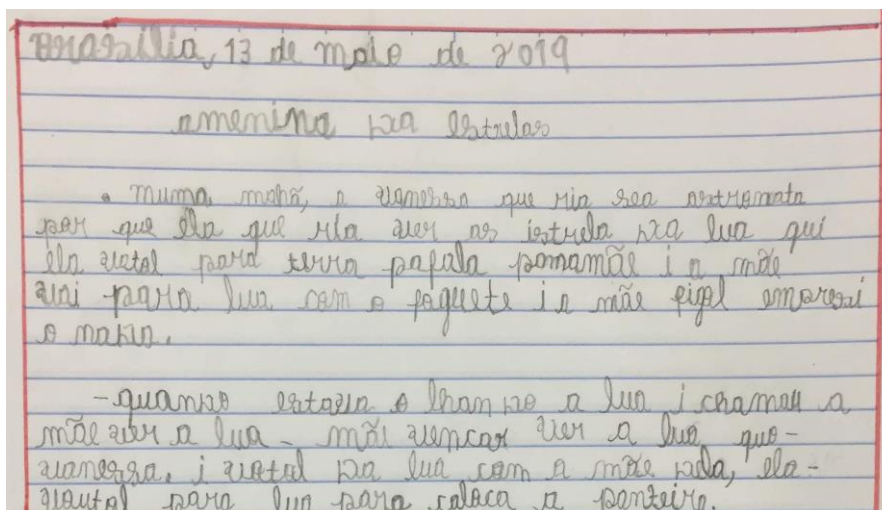 Brasília, 13 de maio de 2019
amenina da estrelas
numa, mahã, a vanessa que ria sea astronata
por que ela que ria ver as istrela da lua qui
ela vatal para terra pafala pomamãe i a mãe
vai para lua com o foguete i a mãe figol emaresai
o makin.
-quando estava o lhan do a lua i chamou a
mãe ver a lua - mãi vencar ver a lua que-
vanessa. i vatal da lua com a mãe dela, ela-
vautal para lua para colaca a ponteira.